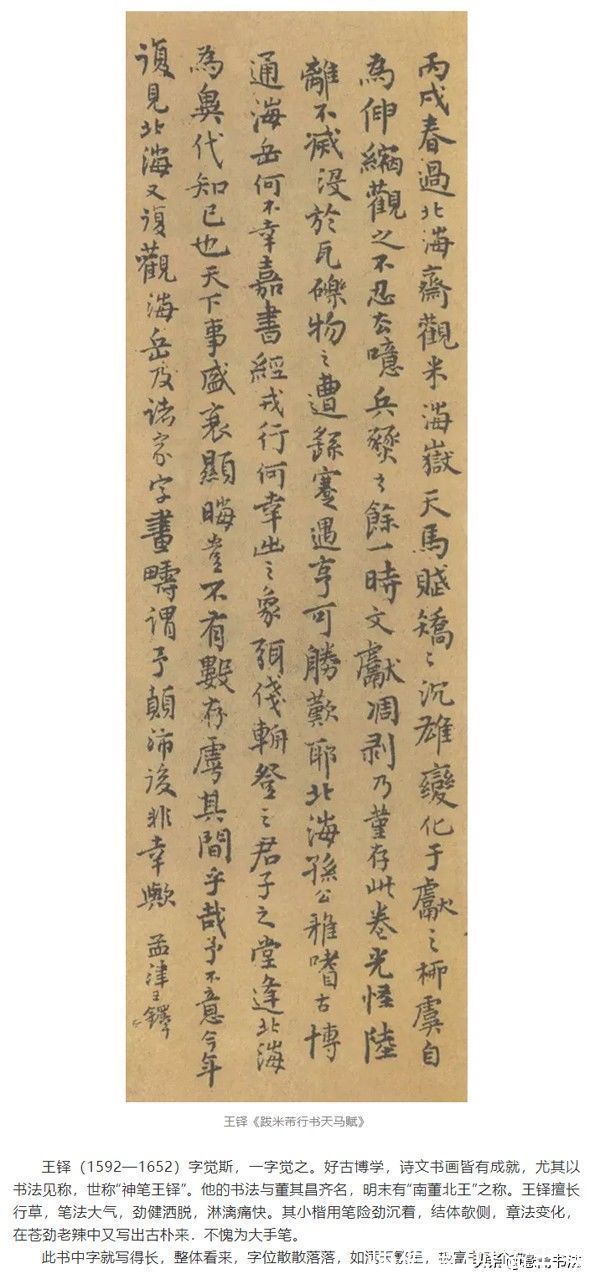 丙戌春過北海齋觀米海嶽天馬賦矯〻沉雄變化于獻之柳虞自
為伸縮觀之不忍去噫兵燹之餘一時文獻凋剥乃董存此卷光怪陸
離不滅没於瓦礫物之遭蹇遇亨可勝歎耶北海孫公雅嗜古博
通海岳何不幸嘉書經戎行何幸出之象弭俴輈登之君子之堂逢北海
為異代知已也天下事盛衰顯晦豈不有數存虖其間乎哉予不意今年
復見北海又復觀海岳及诸家字畫疇謂予顛沛後非幸歟 孟津王鐸
王铎《跋米芾行书天马赋》
王铎（1592—1652）字觉斯，一字觉之。好古博学，诗文书画皆有成就，尤其以
书法见称，世称“神笔王铎”。他的书法与董其昌齐名，明末有“南董北王”之称。王铎擅长
行草，笔法大气，劲健洒脱，淋漓痛快。其小楷用笔险劲沉着，结体欹侧，章法变化，
在苍劲老辣中又写出古朴来．不愧为大手笔。
此书中字就写得长，整体看来，字位散散落落，如